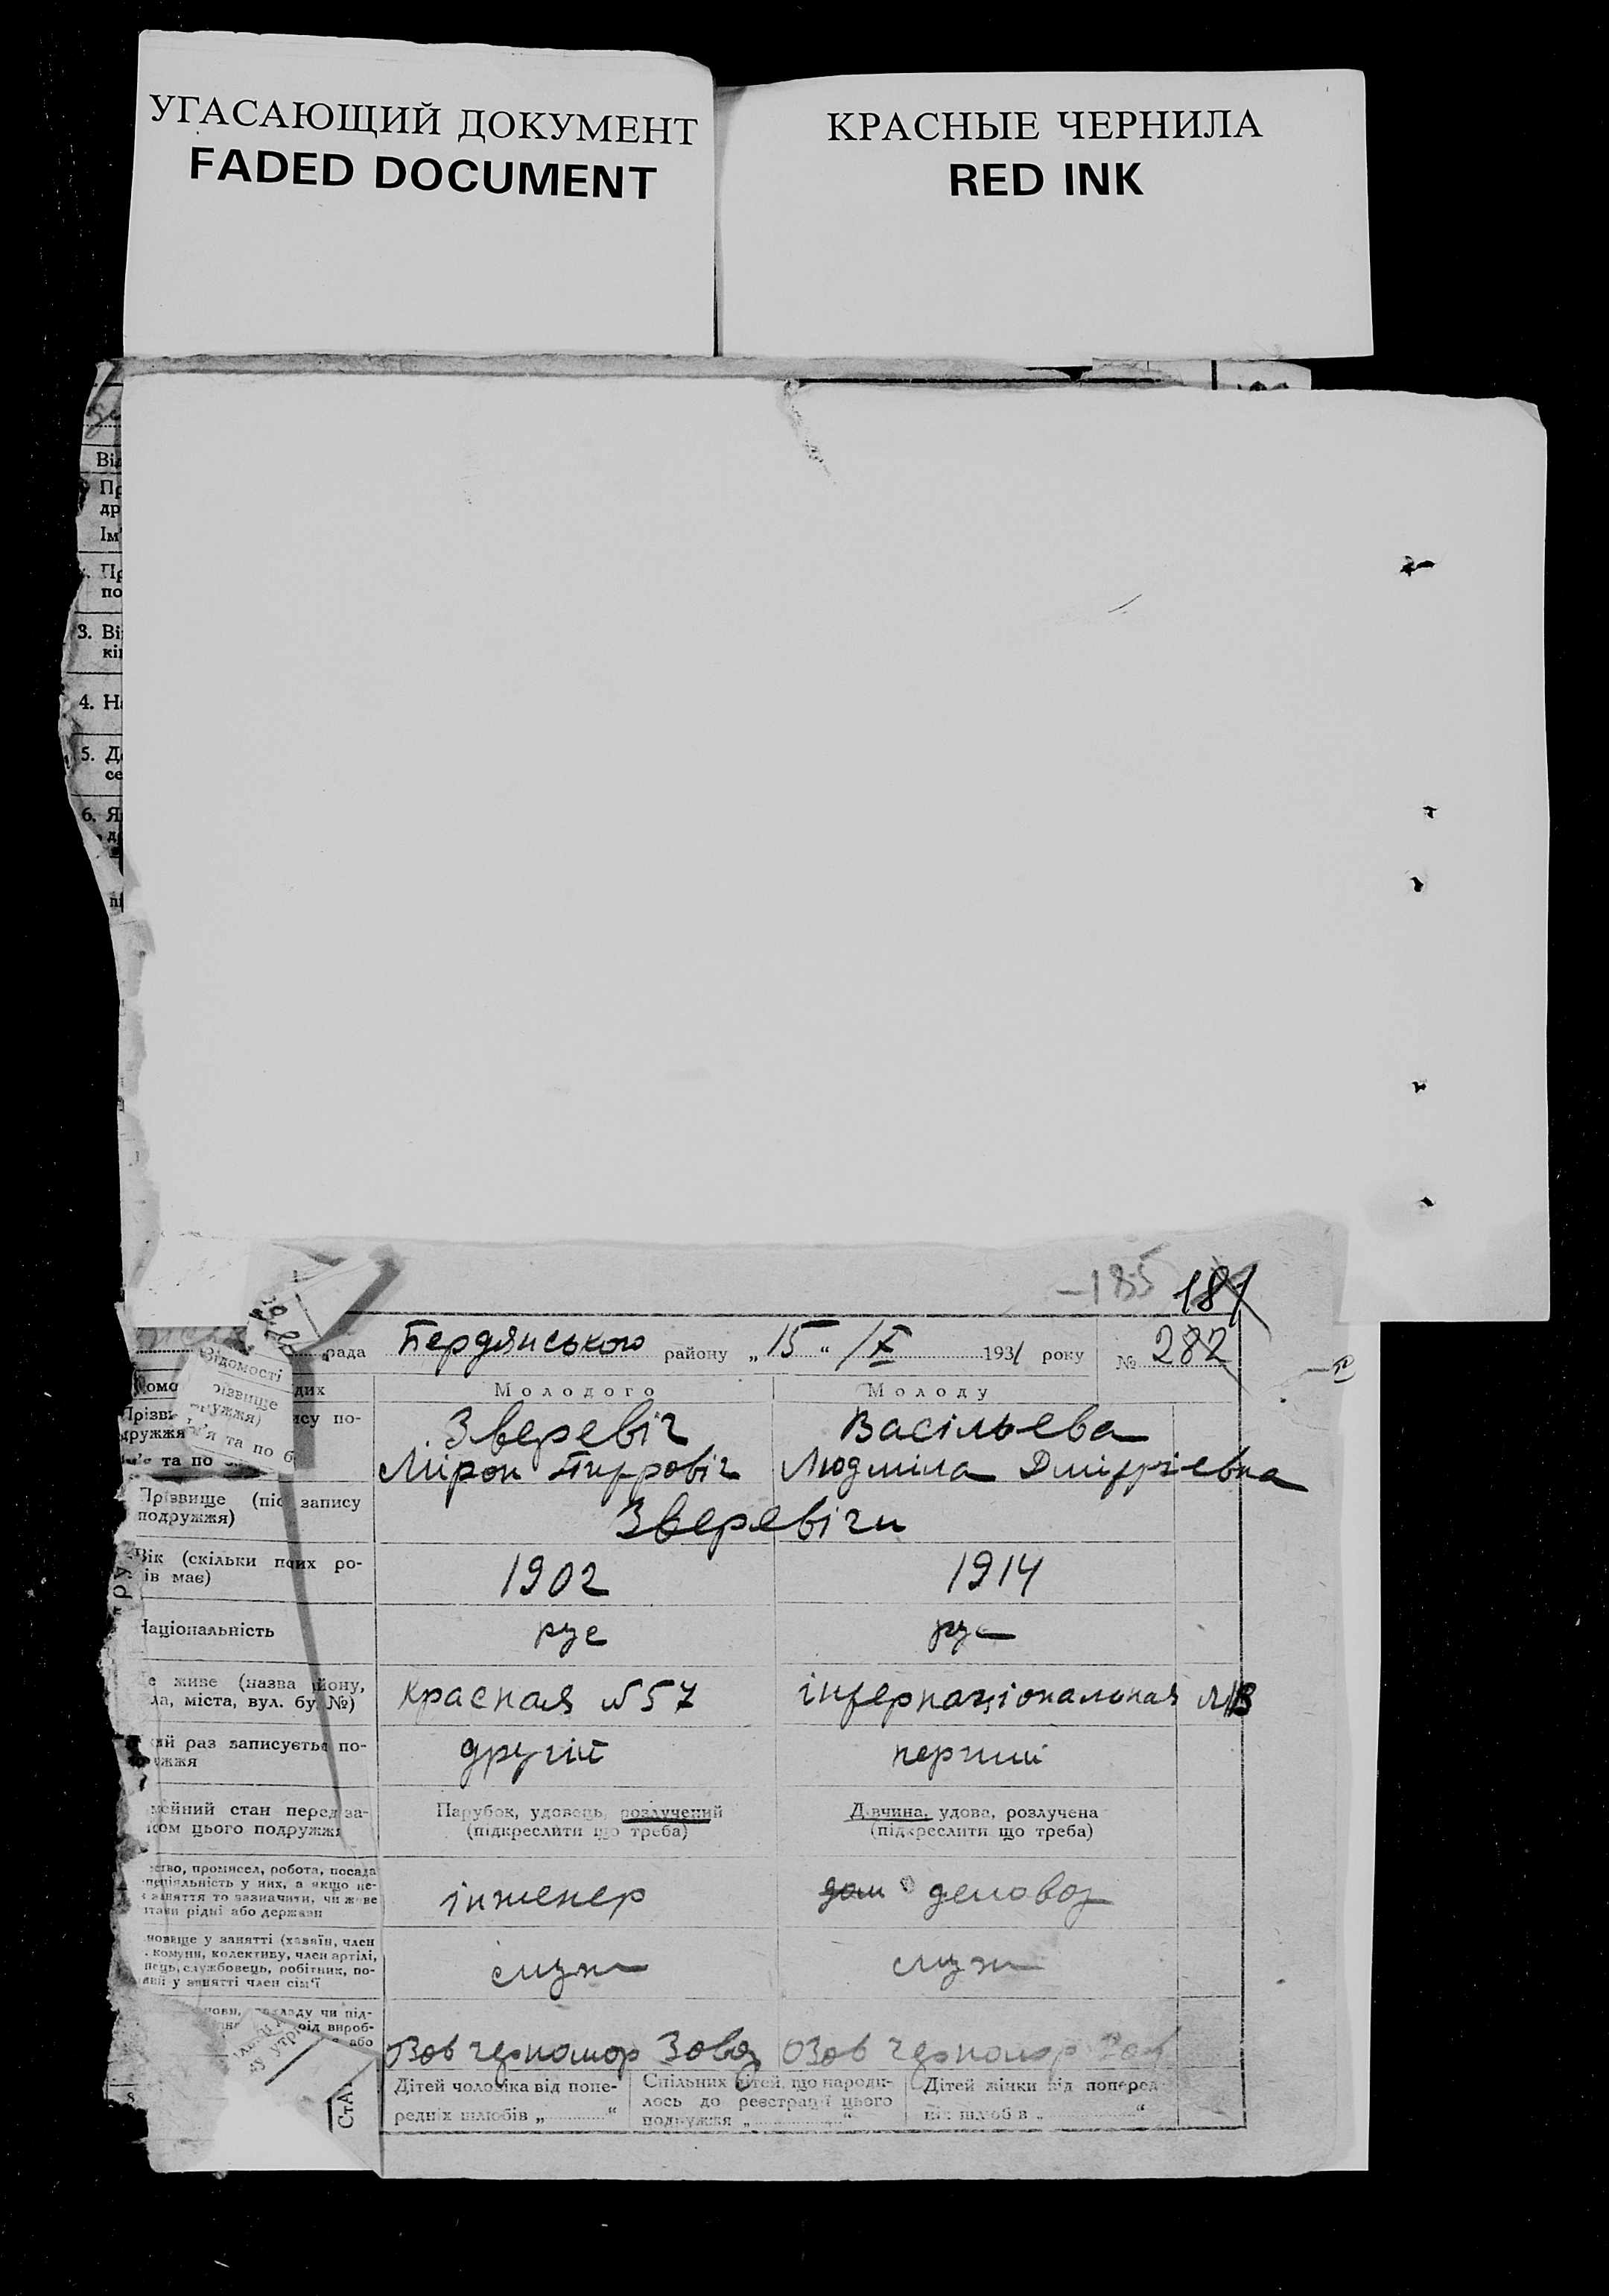 УГАСАЮЩИЙ ДОКУМЕНТ
FADED DOCUMENT
КРАСНЫЕ ЧЕРНИЛА
RED INK
Від
Пр
др
Ім'
Пр
по
3. Ві
кі
4. На
5. Д
се
6. Я
185 181
рада Бердянського району „15“ /X 1931 року № 282
Молодого Молоду
Відомості
різвище
дружжя)
м'я та по б
Зверевіч Васільева
Мірон Пітровіч Людміла Дмітріевна
Прізвище (піс запису
подружжя)
Зверевічи
Вік (скільки по их ро-
ів має)
1902 1914
Національність рус рус
е живе (назва йону,
ла, міста, вул. бу №)
Красная №57 інтернаціональная №
ий раз записується по-
ужжя
другий перший
мейний стан перед за-
ом цього подружжя
Парубок, удовець, розлучений
(підкреслити що треба)
Дівчина, удова, розлучена
(підкреслити що треба)
ство, промисел, робота, посада
пеціяльність у них, а якщо не-
заняття то зазначити, чи живе
рідні або держави
інженер дом деловод
новище у занятті (хазяїн, член
комуни, колективу, член артілі,
нець, службовець, робітник, по-
у занятті член сім'ї
служ служ
нови, закладу чи під-
вироб-
або
Черномор Завод Черномор
СтА
Дітей чоловіка від попе-
редніх шлюбів „ “
Спільних дітей, що народи-
лось до реєстрації цього
подружжя „ “
Дітей жінки від поперед-
ніх шлюбів „ “